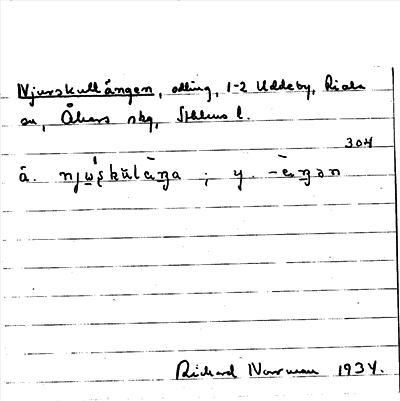 Njurskullängen, odling, 1-2 Uddeby, Riala
sn, Åkers skg, Sthlms l.
304
ä. njɯ́ʂkŭlὲŋa ; y. -ὲŋən
Rickard Norrman 1934.